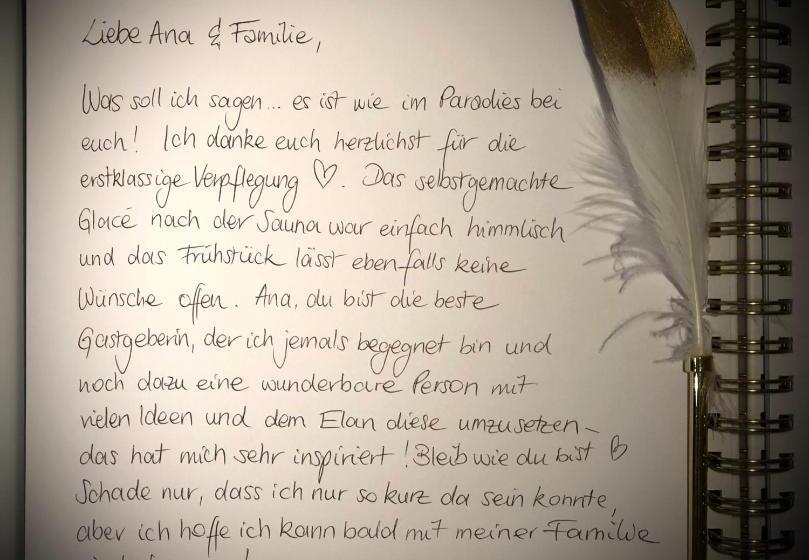 Liebe Ana & Familie,
Was soll ich sagen... es ist wie im Paradies bei
euch! Ich danke euch herzlichst für die
erstklassige Verpflegung ♡. Das selbstgemachte
Glacé nach der Sauna war einfach himmlisch
und das Frühstück lässt ebenfalls keine
Wünsche offen. Ana, du bist die beste
Gastgeberin, der ich jemals begegnet bin und
noch dazu eine wunderbare Person mit
vielen Ideen und dem Elan diese umzusetzen -
das hat mich sehr inspiriert! Bleib wie du bist ♡
Schade nur, dass ich nur so kurz da sein konnte,
aber ich hoffe ich kann bald mit meiner Familie